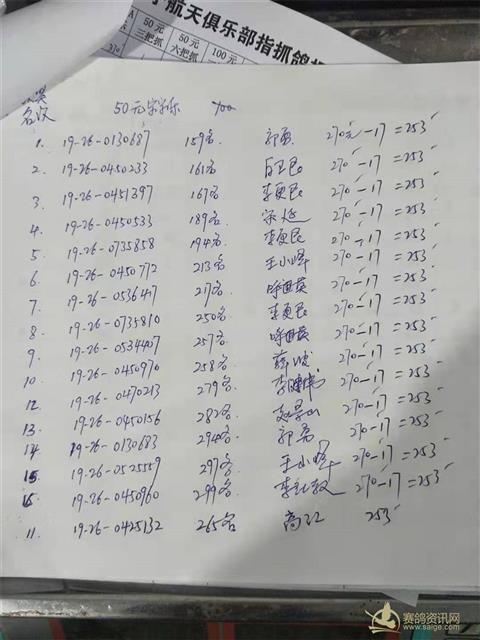 航天俱乐部指抓鸽
50元 50元 100元
三把抓 六把抓
名次 50元
1. 19-26-0130687 159名. 郭勇 270元-17=253
2. 19-26-0450233 161名 白卫民 270-17=253
3. 19-26-0451397 167名 李更民 270-17=253
4. 19-26-0450533 189名 宋延 270-17=253
5. 19-26-0735858 194名 李更民 270-17=253
6. 19-26-0450772 213名 王小峰 270-17=253
7. 19-26-0536417 217名 呼田英 270-17=253
8. 19-26-0735810 250名 李更民 270-17=253
9. 19-26-0534407 257名 呼田英 270-17=253
10. 19-26-0450970 258名 薛波 270-17=253
12. 19-26-0470213 279名 270-17=253
13. 19-26-0450156 282名 270-17=253
14 19-26-0130683 294名 郭勇 270-17=253
15. 19-26-0525559 297名 王小峰 270-17=253
15. 19-26-0450960 299名 270-17=253
11. 19-26-0425132 265名 高江 253
赛鸽资讯网
www.saige.com